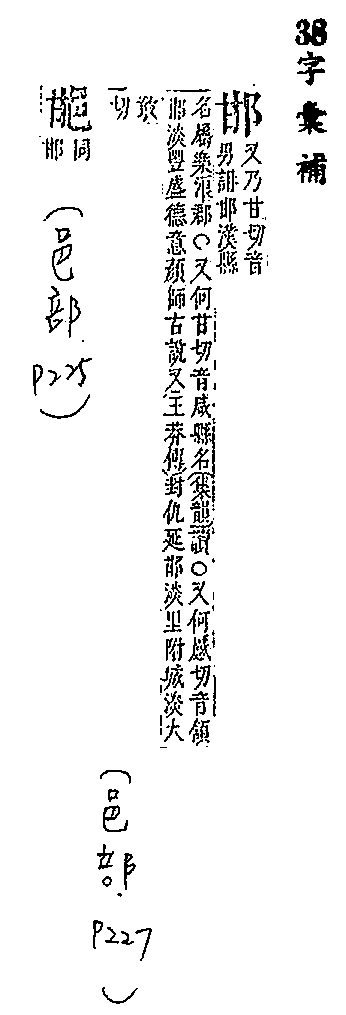 38字彙補
邯又乃甘切音
男䛁邯漢縣
名屬樂浪郡○又何甘切音咸縣名集韻讀○又何感切音頷
邯淡豐盛德意顏師古說又王莽傳封仇延邯淡里附城淡大
敢
切
同
邯
(邑部.
P225)
(邑部.
P227)